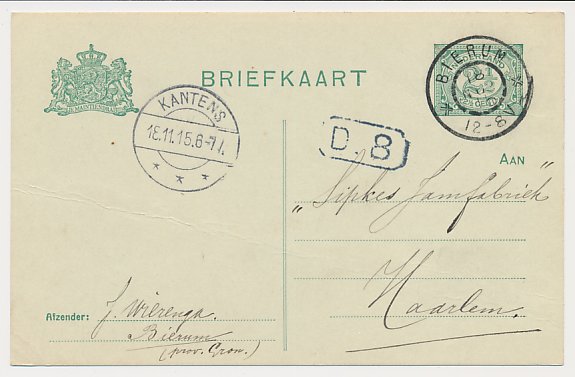 BRIEFKAART
BIERUM
12-8V
KANTENS
16.11.15.6-7V.
D. 8
AAN
„Sipkes Jamfabriek"
Haarlem.
Afzender:
J. Wierenga.
Bierum
(prov. Gron.)